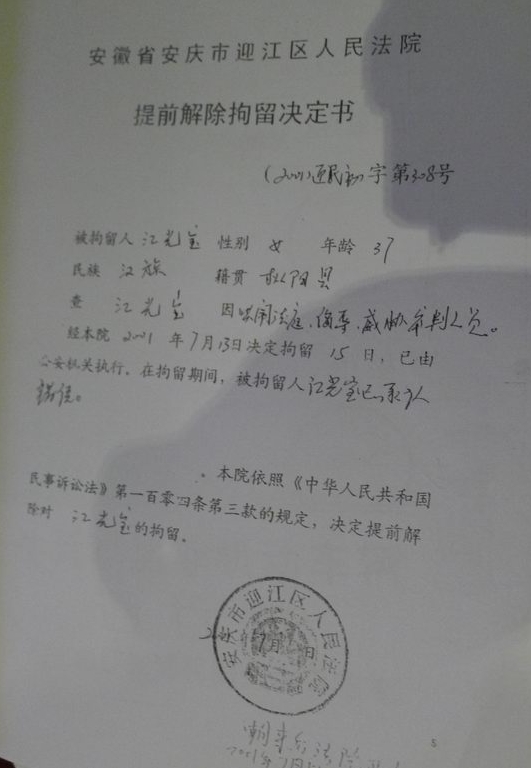 安徽省安庆市迎江区人民法院
提前解除拘留决定书
(2001)迎民初字第308号
被拘留人 江光宝 性别 女 年龄 37
民族 汉族 籍贯 枞阳县
查 江光宝 因哄闹法庭、侮辱、威胁审判人员。
经本院 2001 年7月13日决定拘留 15 日，已由
公安机关执行。在拘留期间，被拘留人江光宝已承认
错误。
。本院依照《中华人民共和国
民事诉讼法》第一百零四条第三款的规定，决定提前解
除对 江光宝的拘留。
安庆市迎江区人民法院
5